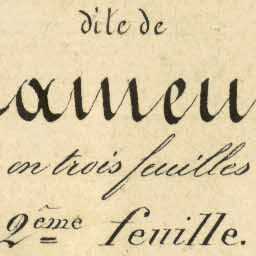 dite de
ameu
en trois feuilles
2ème feuille.